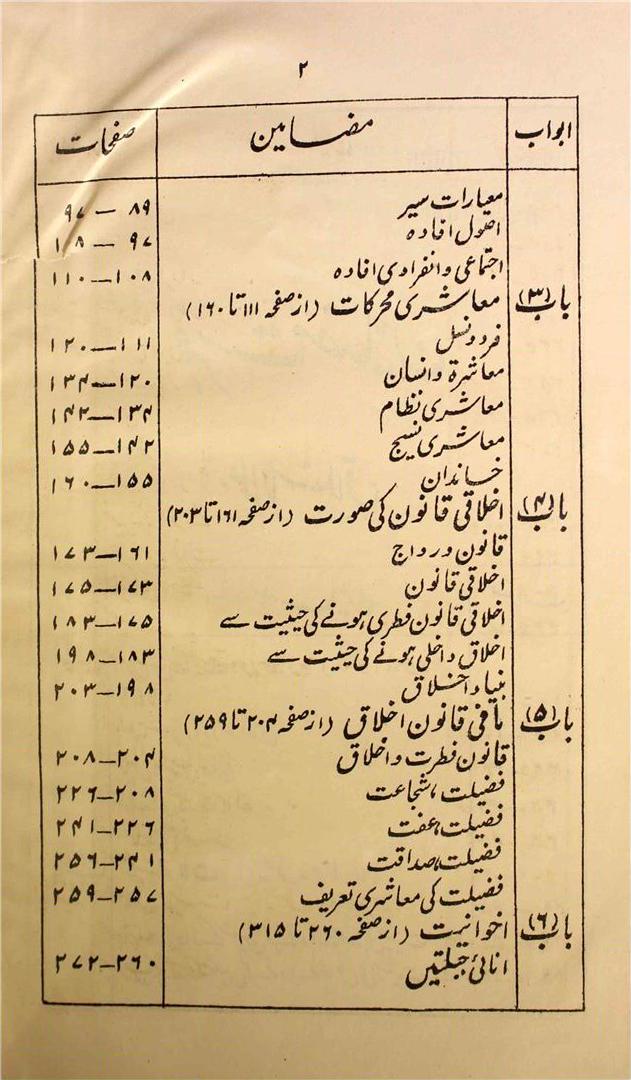 ۲
ابواب مضامین صفحات
معیارات سیر ۸۹ — ۹۷
اصول افادہ ۹۷ — ۱۰۸
اجتماعی و انفرادی افادہ ۱۰۸—۱۱۰
باب (۳) معاشری محرکات (از صفحہ ۱۱۱ تا ۱۶۰)
فرد و نسل ۱۱۱—۱۲۰
معاشرۃ و انسان ۱۲۰—۱۳۴
معاشری نظام ۱۳۴—۱۴۲
معاشری نسیج ۱۴۲—۱۵۵
خاندان ۱۵۵—۱۶۰
باب (۴) اخلاقی قانون کی صورت (از صفحہ ۱۶۱ تا ۲۰۳)
قانون و رواج ۱۶۱—۱۷۳
اخلاقی قانون ۱۷۳—۱۷۵
اخلاقی قانون فطری ہونے کی حیثیت سے ۱۷۵—۱۸۳
اخلاق داخلی ہونے کی حیثیت سے ۱۸۳—۱۹۸
بنیاد اخلاق ۱۹۸—۲۰۳
باب (۵) مافی قانون اخلاق (از صفحہ ۲۰۴ تا ۲۵۹)
قانون فطرت و اخلاق ۲۰۴—۲۰۸
فضیلت، شجاعت ۲۰۸—۲۲۶
فضیلت، عفت ۲۲۶—۲۴۱
فضیلت، صداقت ۲۴۱—۲۵۶
فضیلت کی معاشری تعریف ۲۵۷—۲۵۹
باب (۶) اخوانیت (از صفحہ ۲۶۰ تا ۳۱۵)
انائی جبلتیں ۲۶۰—۲۷۲